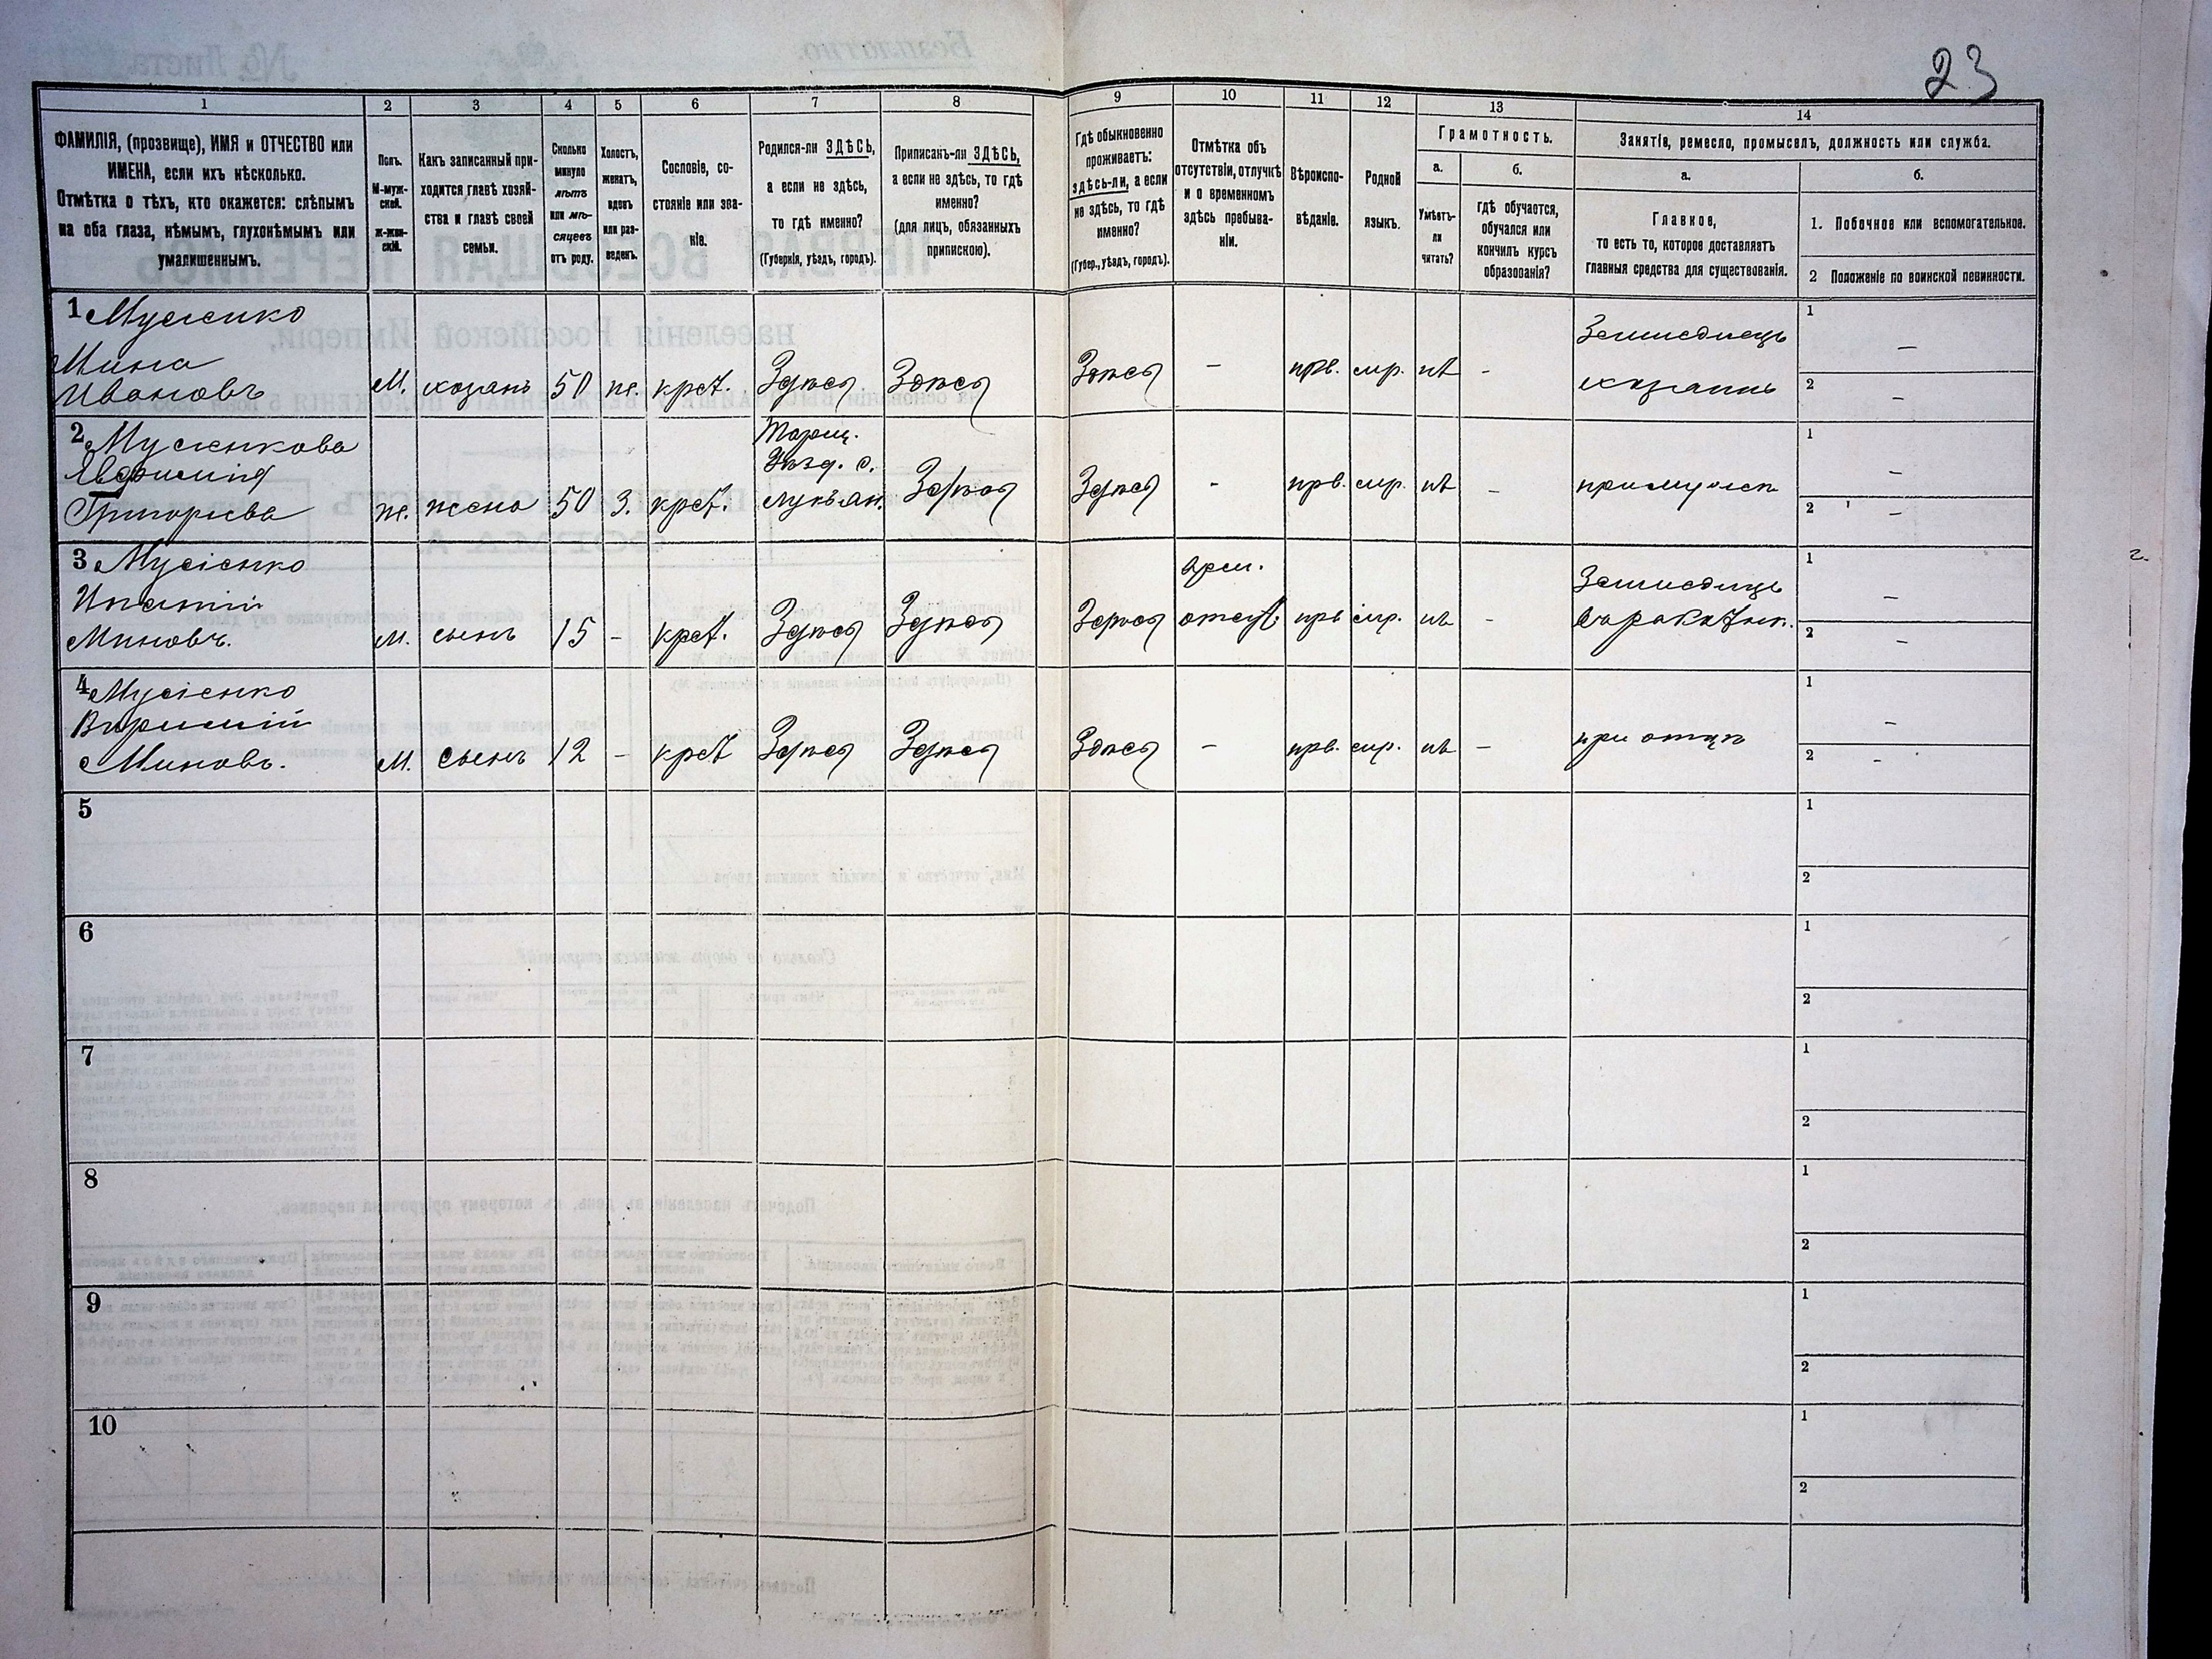 23
1
2
3
4
5
6
7
8
9
10
11
12
13
14
ФАМИЛІЯ, (прозвище), ИМЯ и ОТЧЕСТВО или
ИМЕНА, если ихъ нѣсколько.
Отмѣтка о тѣхъ, кто окажется: слѣпымъ
на оба глаза, нѣмымъ, глухонѣмымъ или
умалишеннымъ.
Полъ.
М-муж-
ской.
ж-жен-
скій.
Какъ записанный при-
ходится главѣ хозяй-
ства и главѣ своей
семьи.
Сколько
минуло
лѣтъ
или мѣ-
сяцевъ
отъ роду.
Холостъ,
женатъ,
вдовъ
или раз-
веденъ.
Сословіе, со-
стояніе или зва-
ніе.
Родился-ли ЗДѢСЬ,
а если не здѣсь,
то гдѣ именно?
(Губернія, уѣздъ, городъ).
Приписанъ-ли ЗДѢСЬ,
а если не здѣсь, то гдѣ
именно?
(для лицъ, обязанныхъ
припискою).
Гдѣ обыкновенно
проживаетъ:
здѣсь-ли, а если
не здѣсь, то гдѣ
именно?
(Губер., уѣздъ, городъ).
Отмѣтка объ
отсутствіи, отлучкѣ
и о временномъ
здѣсь пребыва-
ніи.
Вѣроиспо-
вѣданіе.
Родной
языкъ.
Грамотность.
а.
Умѣетъ-
ли
читать?
б.
гдѣ обучается,
обучался или
кончилъ курсъ
образованія?
Занятіе, ремесло, промыселъ, должность или служба.
а.
Главное,
то есть то, которое доставляетъ
главныя средства для существованія.
б.
1. Побочное или вспомогательное.
2 Положеніе по воинской повинности.
1 Мусіенко
Мина
Ивановъ
М. хозяинъ 50 же. крест. Здѣсь Здѣсь Здѣсь – прв. мр. нѣ -
Земледѣлецъ
хозяинъ
1 –
2 –
2 Мусіенкова
Евфимія
Григорьева
же. жена 50 З. крест.
Уѣзд. с.
Здѣсь Здѣсь - прв. мр. нѣ –
при мужѣ
1 –
2 –
3 Мусіенко
Ипатій
Миновъ.
М. сынъ 15 - крест. Здѣсь Здѣсь Здѣсь
врем.
отсут. прв мр. нѣ -
Земледѣлецъ
1 –
2 –
4 Мусіенко
Миновъ.
М. сынъ 12 - крест Здѣсь Здѣсь Здѣсь – прв. мр. нѣ –
при отцѣ
1 –
2 -
5
1
2
6
1
2
7
1
2
8
1
2
9
1
2
10
1
2